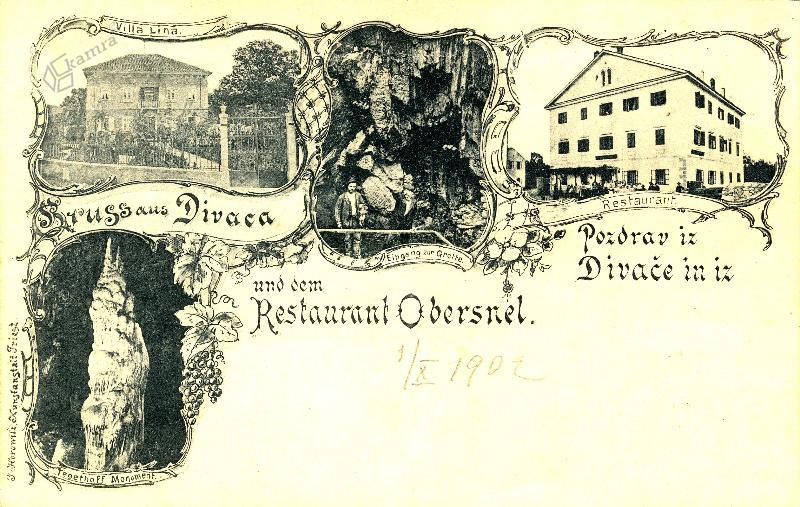 kamra
Villa Lina.
Gruss aus Divača
Eingang zur Grotte
Restaurant
Pozdrav iz
Divače in iz
und dem
Restaurant Obersnel.
1/X 1902
Tegethoff Monument.
J. Horowitz Kunstanstalt Triest